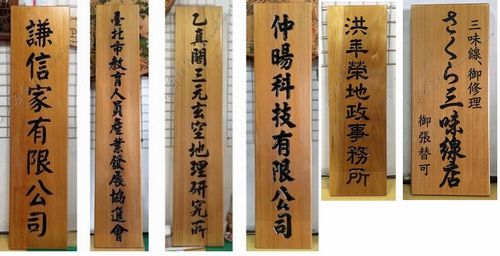 謙信家有限公司
臺北市教育人員產業發展協進會
乙真閣三元玄空地理研究所
仲暘科技有限公司
洪丰榮地政事務所
三味線、御修理
さくら三味線店
御張替可